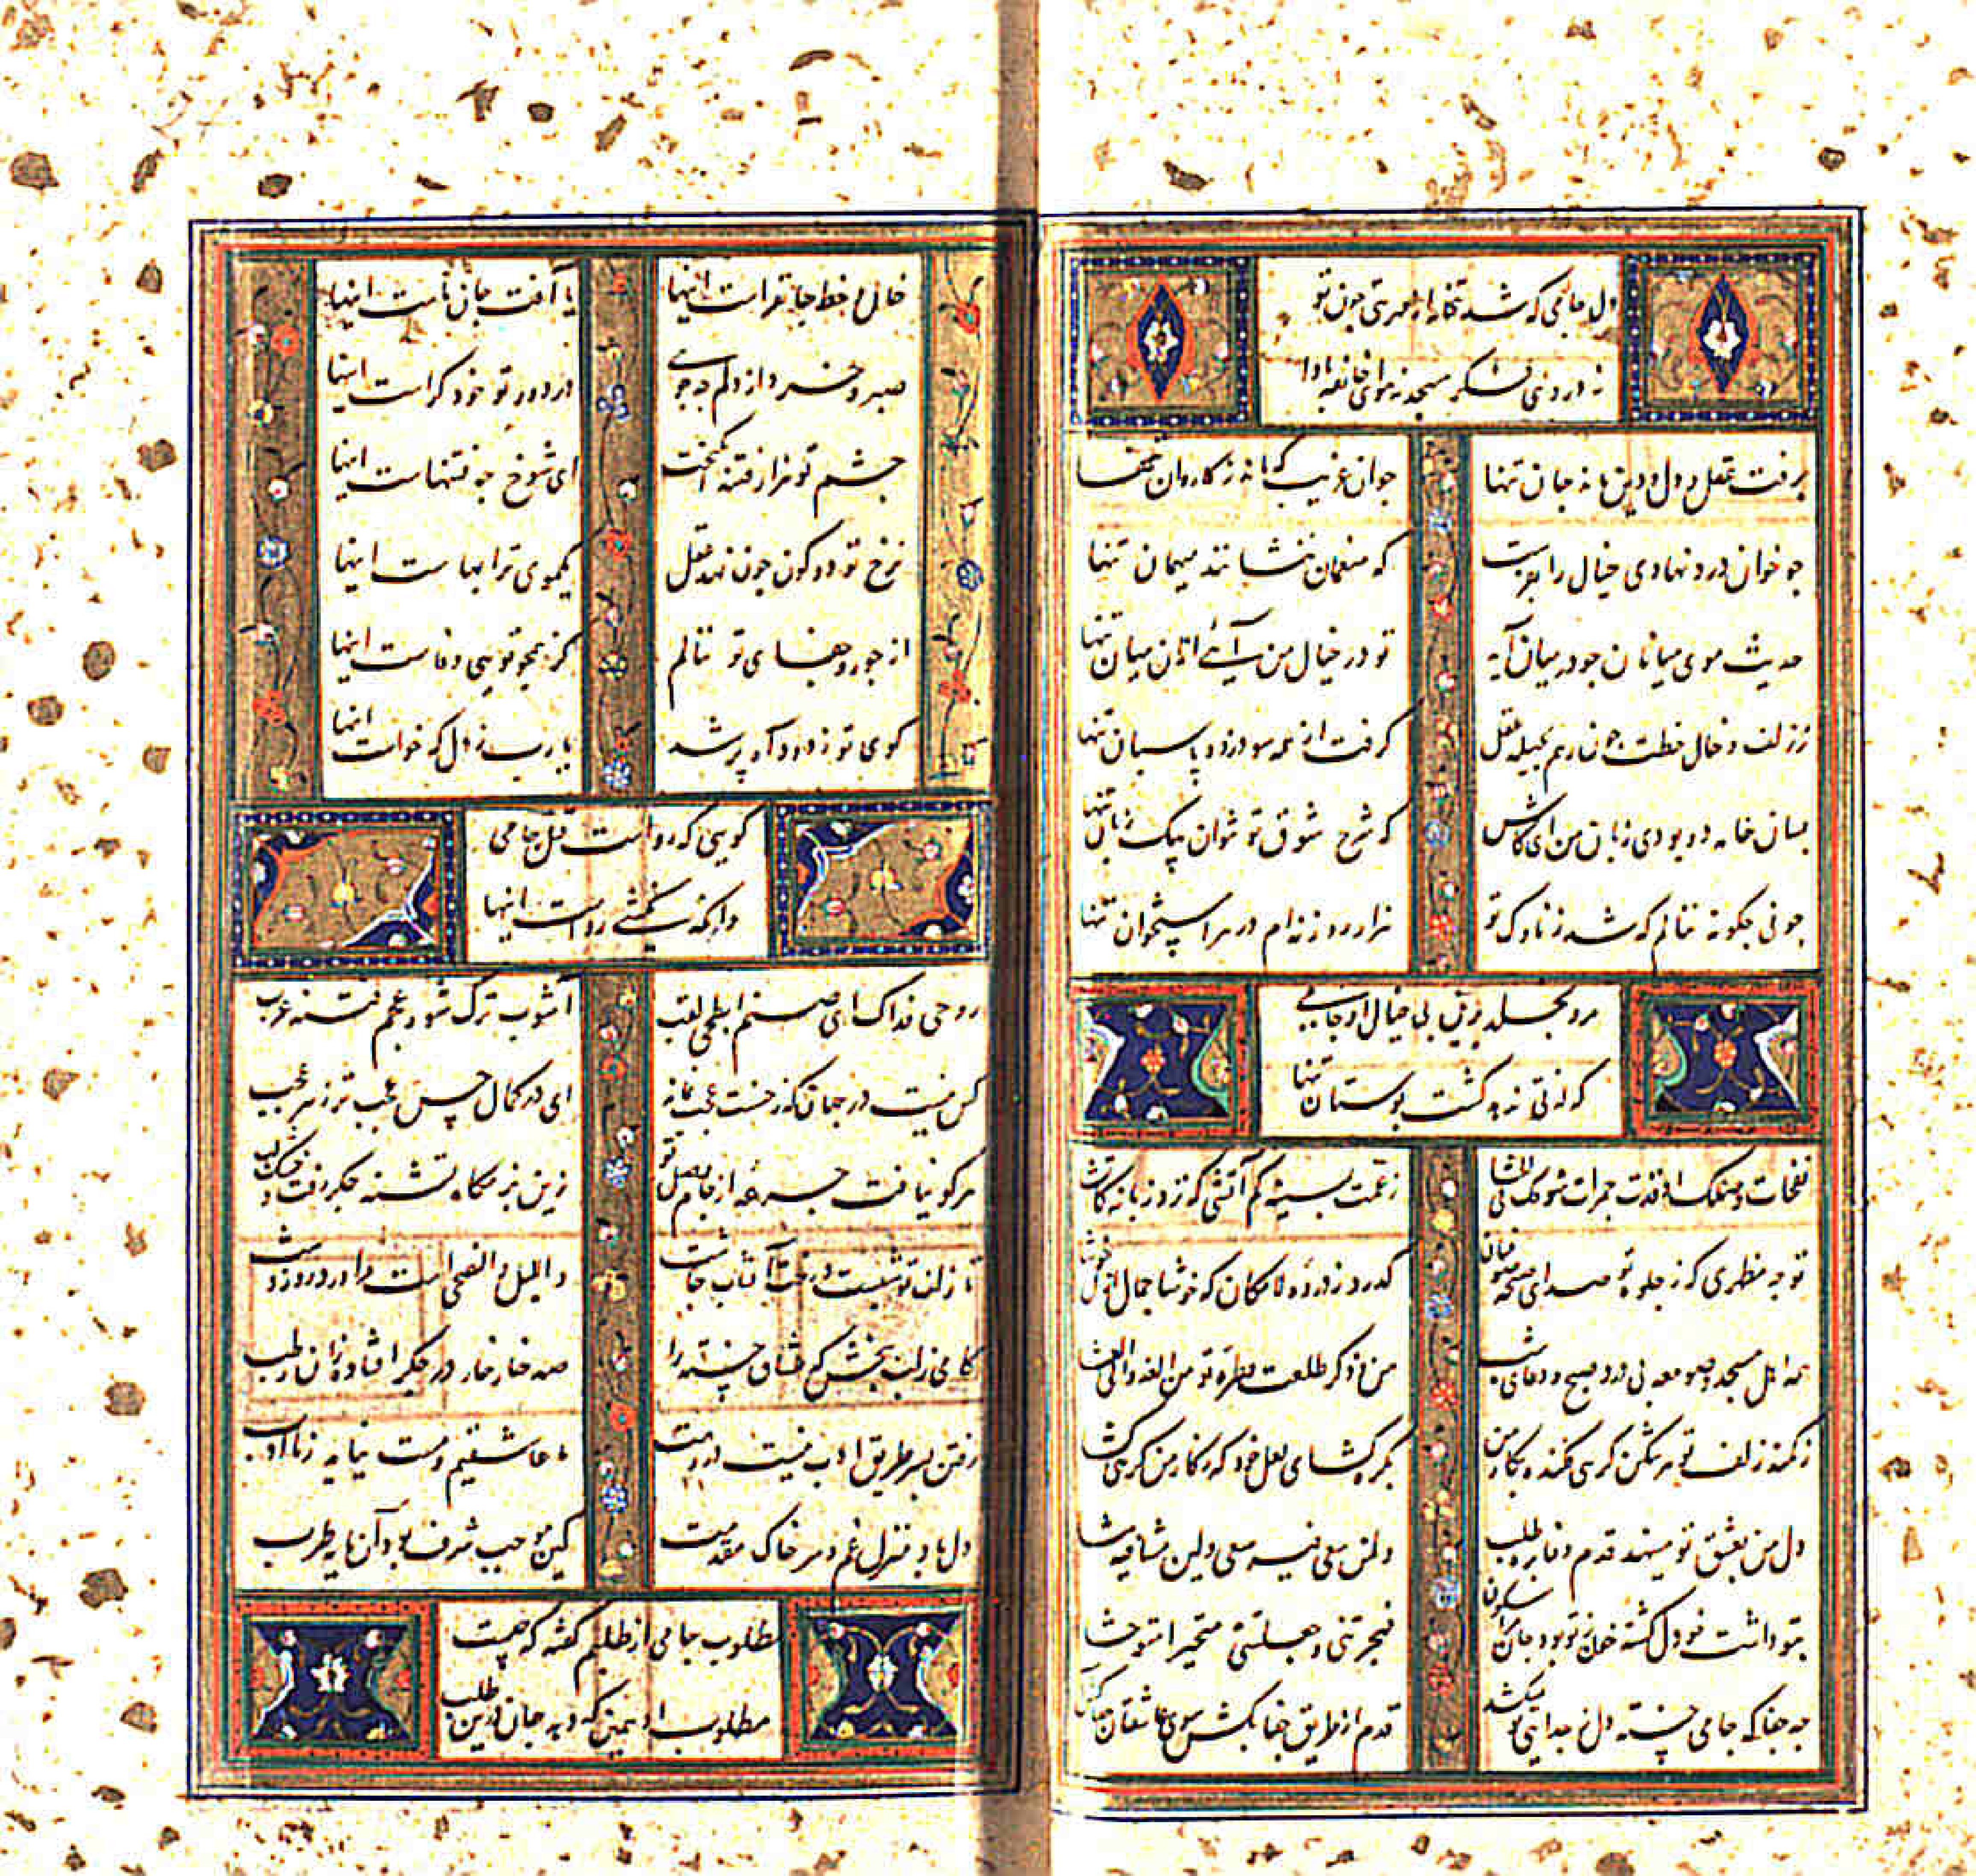 دل جامی که شد بتخانه از صورتی چون تو
نه دارد ذی مسجد نه هوای خانقه او را
برفت عقل و دل و دین مانده جان تنها
جو آن غریب که ماند ز کاروان تنها
جو خوان درد نهادی خیال را بفرست
که منعمان ننشانند میهمان تنها
حدیث موی میانان جو در میان آید
تو در خیال من آیی از آن میان تنها
ز زلف و خال و خطت چون رهم بحیله عقل
گرفت از همه سو دزد و پاسبان تنها
بسان خامه دو بودی زبان من ای کاش
که شرح شوق تو نتوان بیک زبان تنها
جو نی چگونه ننالم که شد ز ناوک تو
هزار روزنه‌ام در هر استخوان تنها
مرو بخلد برین بی خیال او جامی
که لذتی ندهد گشت بوستان تنها
نفحات وصلک اوقدت جمرات شوقک فی الحشا
ز غمت بسینه کم آتشی که نزد زبانه کما تشا
تو چه مظهری که ز جلوه تو صدای صیحه صوفیان
گذرد ز ذروه لامکان که خوشا جمال ازل خوشا
همه اهل مسجد و صومعه پی ورد صبح و دعای شب
من و ذکر طلعت و طره تو من الغداة الی العشا
ز کمند زلف تو هر شکن گرهی فکنده بکار من
بگره گشایی لعل خود که ز کار من گرهی گشا
دل من بعشق تو مینهد قدم وفا بره طلب
فلئن سعی فبه سعی ولئن مشی فبه مشا
بتو داشت خو دل گشته خون ز تو بود جان مرا سکون
فهجرتنی و جعلتنی متحیرا متوحشا
چه جفا که جامی خسته دل ز جدایی تو نمیکشد
قدم از طریق جفا بکش سوی عاشقان جفاکش آ
خال و خط جانفزاست اینها
یا آفت جان ماست اینها
صبر و خرد از دلم چه جویی
در دور تو خود کراست اینها
چشم تو هزار فتنه انگیخت
ای شوخ چه فتنهاست اینها
نرخ تو دو کون چون نهد عقل
یکموی ترا بهاست اینها
از جور و جفای تو ننالم
کز همچو تویی وفاست اینها
کوی تو ز دود آه پر شد
یا رب ز دل که خواست اینها
گویی که رواست قتل جامی
وانگه نکشی رواست اینها
روحی فداک ای صنم ابطحی لقب
آشوب ترک شور عجم فتنه عرب
کس نیست در جهان که ز حسنت عجب نماند
ای در کمال حسن عجب تر ز هر عجب
هرکو نیافت جرعه از جام وصل تو
زین بزمگاه تشنه جگر رفت و خشک لب
تا زلف تو شبست و رخت آفتاب چاشت
واللیل والضحی است مرا ورد روز و شب
کامی ز لب ببخش که عشاق خسته را
صد خار خار در جگر افتاده زان رطب
رفتن بسر طریق ادب نیست در رهت
ما عاشقیم و مست نیاید ز ما ادب
دل باد منزل غم و سر خاک مقدمت
کین موجب شرف بود آن مایه طرب
مطلوب جامی از طلبم گفته که چیست
مطلوب او همین که دهد جان درین طلب